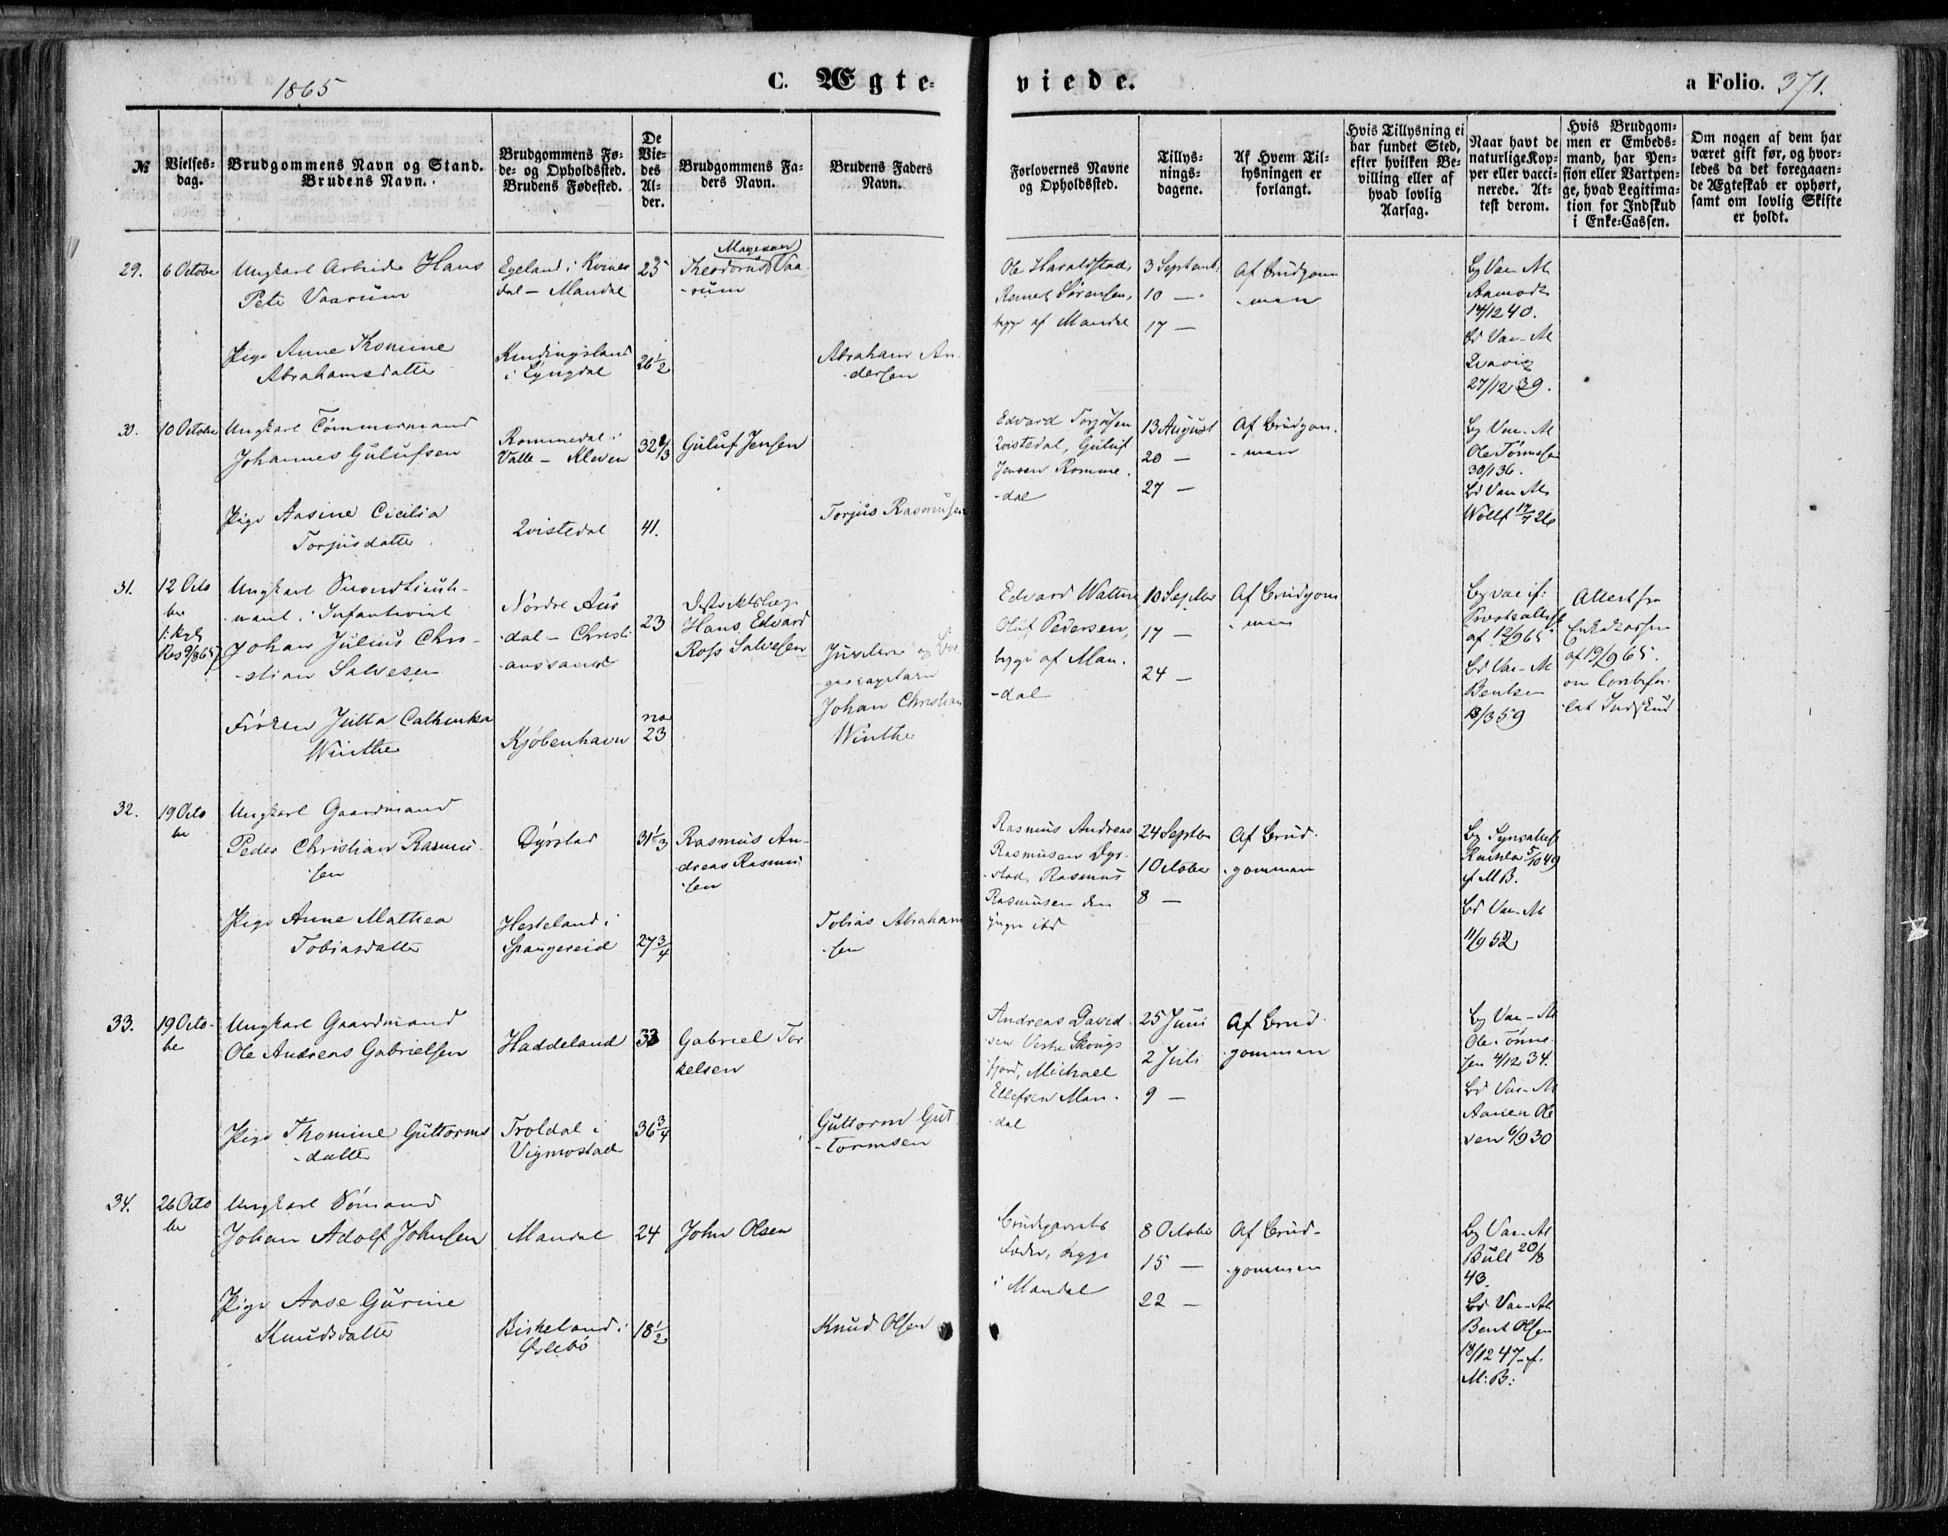 1865
C. Ægte-
viede.
a Folio. 371.
№
Vielses-
dag.
Brudgommens Navn og Stand.
Brudens Navn.
Brudgommens Fø-
de- og Opholdssted.
Brudens Fødested.
De
Vie-
des
Al-
der.
Brudgommens Fa-
ders Navn.
Brudens Faders
Navn.
Forlovernes Navne
og Opholdssted.
Tillys-
nings-
dagene.
Af Hvem Til-
lysningen er
forlangt.
Hvis Tillysning ei
har fundet Sted,
efter hvilken Be-
villing eller af
hvad lovlig
Aarsag.
Naar havt de
naturlige Kop-
per eller vacci-
nerede. At-
test derom.
Hvis Brudgom-
men er Embeds-
mand, har Pen-
sion eller Vartpen-
ge, hvad Legitima-
tion for Indskud
i Enke-Cassen.
Om nogen af dem har
været gift før, og hvor-
ledes da det foregaaen-
de Ægteskab er ophørt,
samt om lovlig Skifte
er holdt.
29.
6 Octobe
Ungkarl Arbeide Hans
Pete Vaarum
Egeland i Kvines
dal – Mandal
25
Theodorus Vaa-
rum
Ole Haraldstad,
Sørensen,
begge af Mandal
3 Septemb.
10 —
17 —
Af Brudgom
man
Bg Vac. At.
Aamodt
14/12 40.
Bd Vac. At
27/12 39.
Pige Anne Thomine
Abrahamsdatte
i Lyngdal
26 1/2
Abraham An-
dersen
30.
10 Octobe
Ungkarl Tömmermand
Johannes Gulufsen
Rommedal i
Valle – Kleven
32 2/3
Guluf Jensen
Edvard Torjusen
Qvistedal, Guluf
Jensen Romme-
dal
13 August
20 —
27 —
Af Brudgom-
man
Bg Vac. At
Ole Tønnesse
30/1 36.
Bd Vac At.
Wolff 17/7 26
Pige Aasine Cicilia
Torjusdatte
Qvistedal
41.
Torjus Rasmusen
31.
12 Octo
be
Kgl
Res 9/8 65
Ungkarl Secondlieut-
nant i Infanteriet
Johan Julius Chri-
stian Salvesen
Nordre Aus
dal – Christi
anssand
23
Hans Edvard
Ross Salvesen
Edvard Watne
Oluf Pedersen,
begge af Man-
dal
10 Septbr
17 —
24 —
Af Brudgom
man
Bg vac if:
af 12/9 65
Bd Vac. At
Bentsen
13/3 59
Attest fra
Enkekassen
af 19/9 65.
om
lat Indskud
Frøken Jutta Cathinka
Winthe
Kjöbenhavn
23
Johan Christian
Winthe
32.
19 Octo
be
Ungkarl Gaardmand
Peder Christian Rasmu
sen
Dyrstad
31 1/3
Rasmus An-
dreas Rasmu
sen
Rasmus Andreas
Rasmusen Dyr-
stad, Rasmus
Rasmusen den
yngre ibd
24 Septbr
1 October
8 —
Af Brud-
gommen
Bg Synsattest
5/10 49
f M B.
Bd Vac. At
11/9 52
Pige Anne Mathea
Tobiasdatte
Hesteland i
Spangereid
27 3/4
Tobias Abraham
sen
33.
19 Octo-
be
Ungkarl Gaardmand
Ole Andreas Gabrielsen
Haddeland
33
Gabriel Tor-
kelsen
Andreas David-
sen Vestre Skougs
fjord, Michael
Ellefsen Man-
dal
25 Juni
2 Juli
9 —
Af Brud-
gommen
Bg Vac. At
Ole Tönne
sen 4/12 34.
Bd Vac. At
Aanen Ole
sen 6/9 30
Pige Thomine Guttorms
datte
Troldal i
Vigmostad
36 3/4
Guttorm Gut
tormsen
34.
26 Octo
be
Ungkarl Sömand
Johan Adolf Johnsen
Mandal
24
John Olsen
Brudeparrets
Fædre, begge
i Mandal
8 Octobe
15 —
22 —
Af Brud-
gommen
Bg Vac. At
Bull 20/8
43.
Bd Vac. At
Bent Olsen
13/12 47. f.
M: B:
Pige Aase Gurine
Knudsdatte
Birkeland i
Öslebö
18 1/2
Knud Olsen